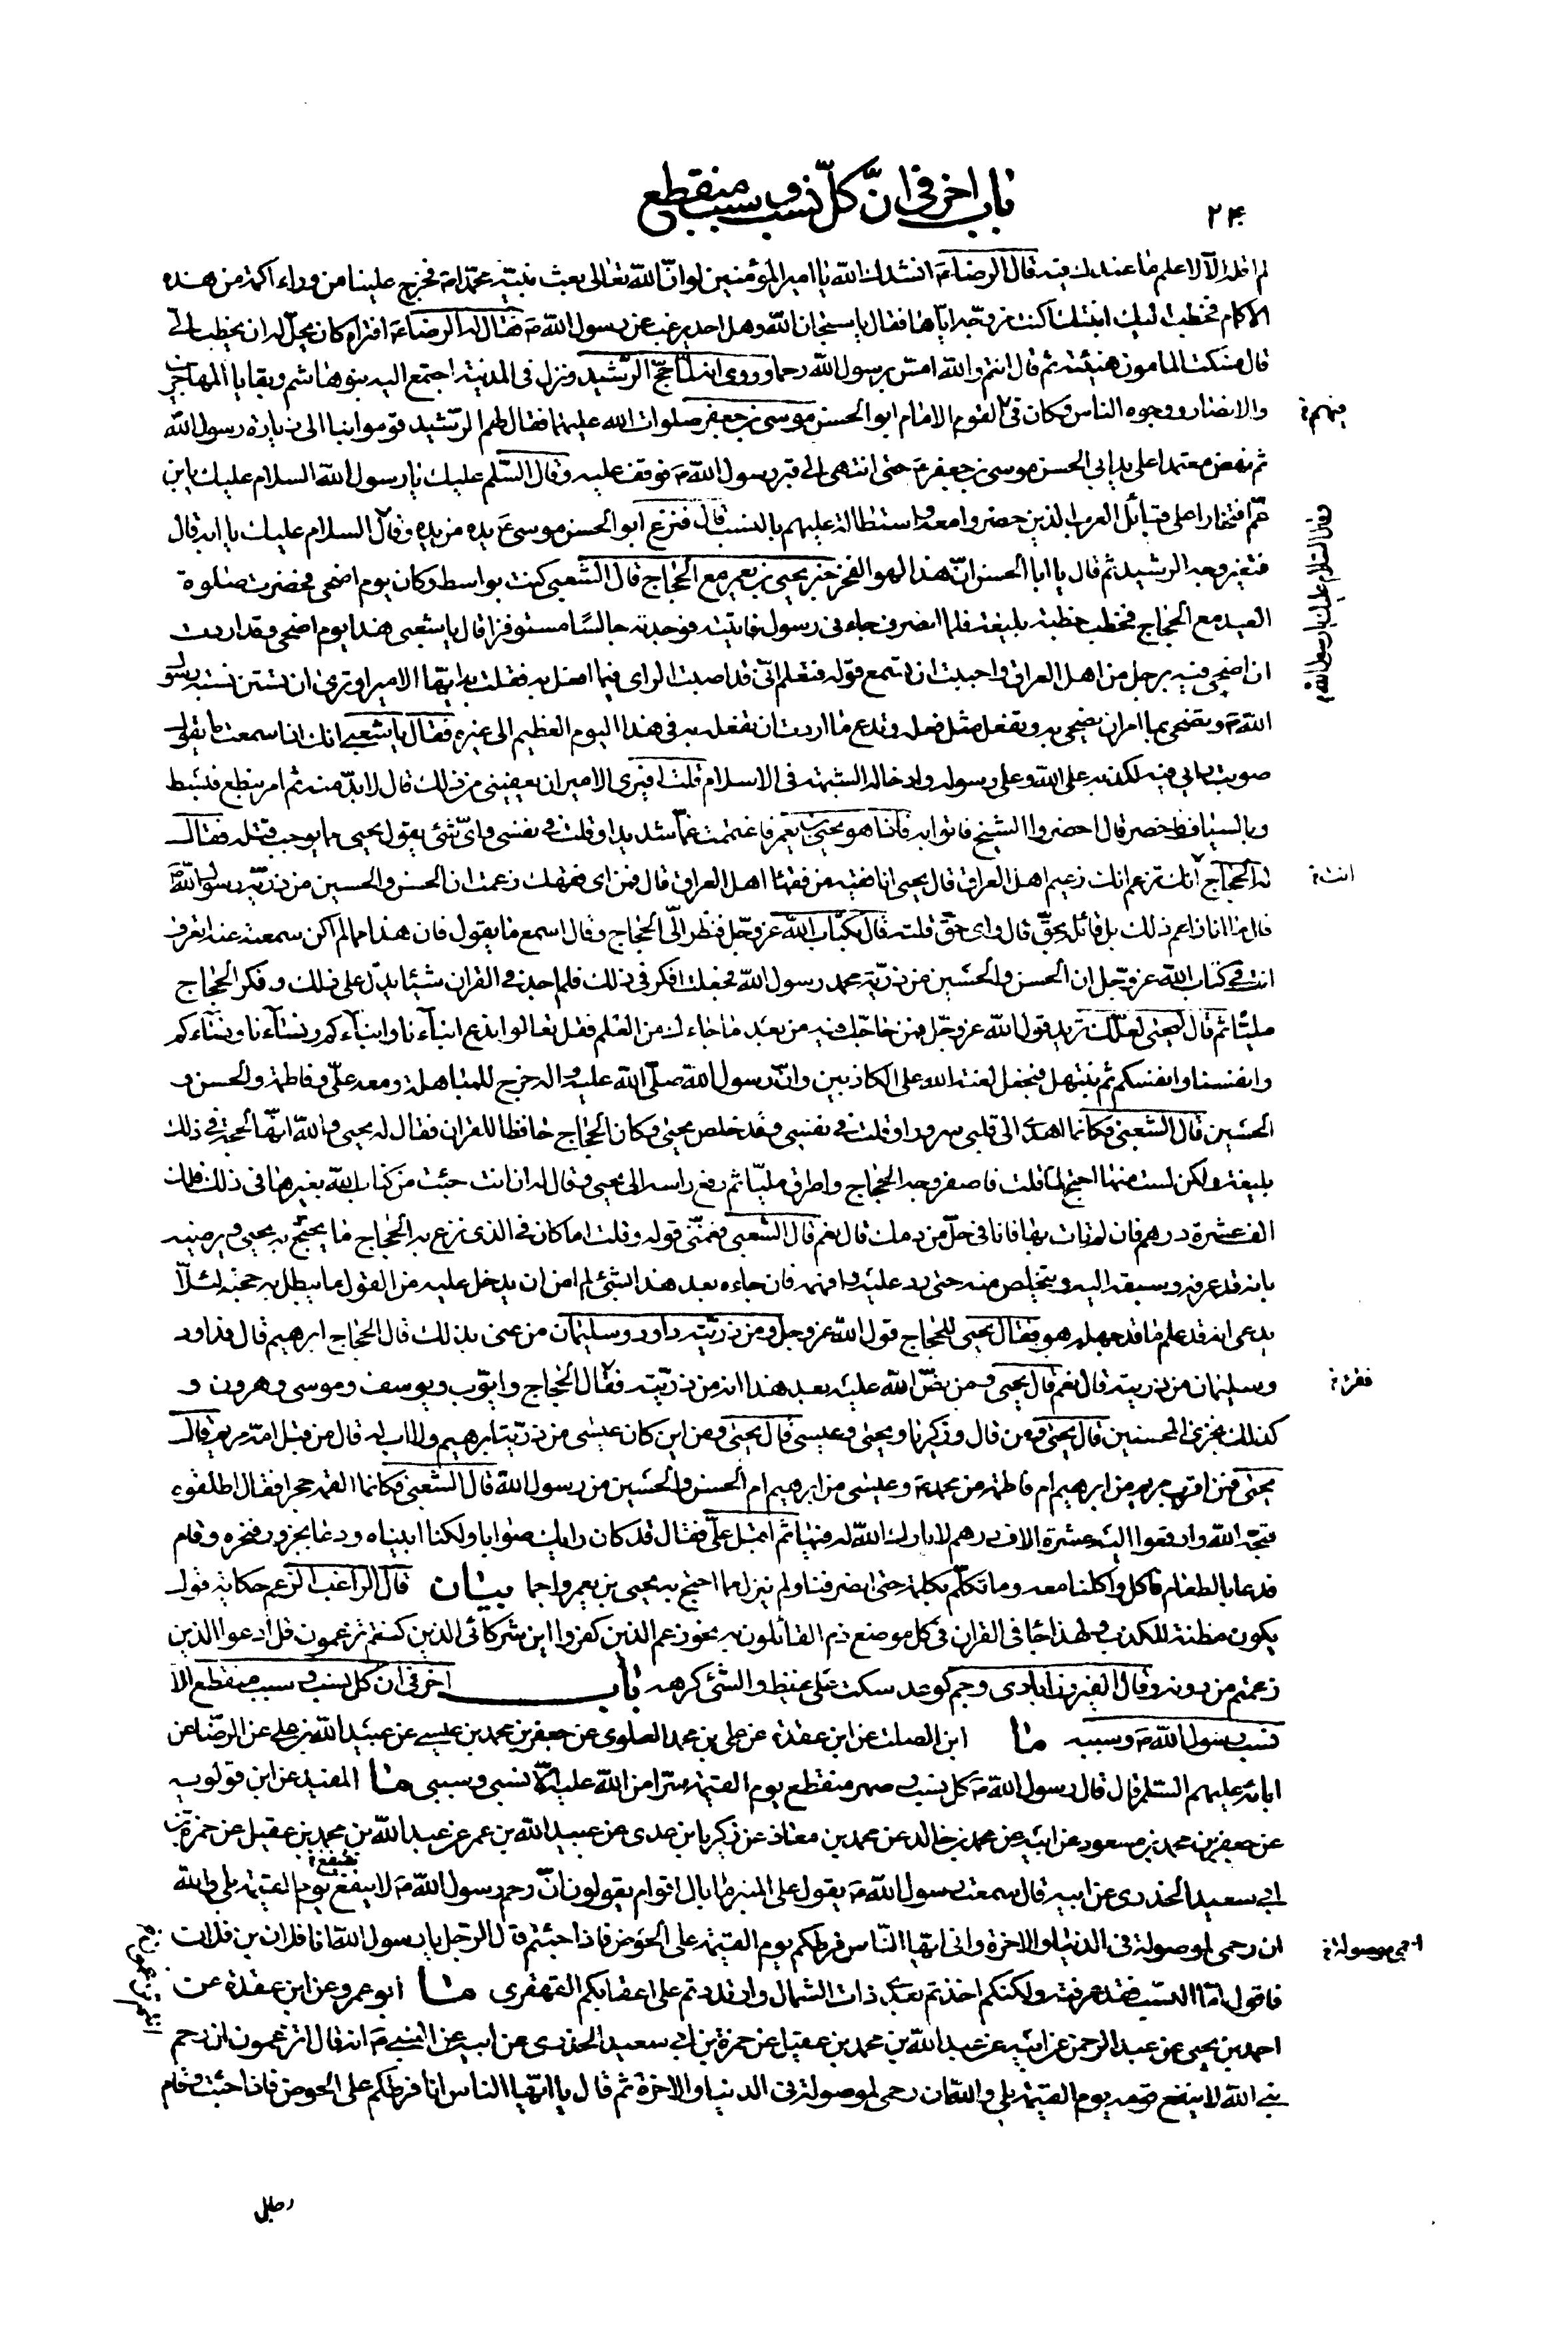 باب اخر فى انّ كلّ نسب و سبب منقطع
۲۴۰
لم اقله الا لاعلم ما عندك فيه قال الرضا ع انشدك الله يا امير المؤمنين لو انّ الله تعالى بعث نبيّه محمّدا ص فخرج علينا من وراء اكمة من هذه
الاكام فخطب اليك ابنتك اكنت مزوجه اياها فقال يا سبحان الله وهل احد يرغب عن رسول الله ص فقال له الرضا ع افتراه كان يحلّ له ان يخطب الى
قال فسكت المامون هنيئة ثم قال انتم والله امسّ برسول الله رحما وروى انه لمّا حجّ الرشيد ونزل فى المدينة اجتمع اليه بنو هاشم وبقايا المهاجرين
والانصار ووجوه الناس وكان فى القوم الامام ابو الحسن موسى بن جعفر صلوات الله عليهما فقال لهم الرشيد قوموا بنا الى زيارة رسول الله
فيهم
ثم نهض معتمدا على يد ابى الحسن موسى بن جعفر ع حتى انتهى الى قبر رسول الله ص فوقف عليه وقال السّلم عليك يا رسول الله السلام عليك يا بن
عمّ افتخارا على قبائل العرب الذين حضروا معه واستطالة عليهم بالنسب قال فنزع ابو الحسن موسى ع يده من يده وقال السلام عليك يا ابه قال
وقال السلام عليك يا رسول الله
فتغير وجه الرشيد ثم قال يا ابا الحسن انّ هذا لهو الفخر خبر يحيى بن يعمر مع الحجاج قال الشعبى كنت بواسط وكان يوم اضحى فحضرت صلوة
العيد مع الحجاج فخطب خطبة بليغة فلما انصرف جاءنى رسوله فاتيته فوجدته جالسًا مستوفزا قال يا شعبى هذا يوم اضحى وقد اردت
ان اضحى فيه برجل من اهل العراق واحببت ان تسمع قوله فتعلم انّى قد اصبت الراى فيما افعل به فقلت ايها الامير او ترى ان تستن بسنة رسول
الله ص وتضحى بما امر ان يضحى به وتفعل مثل فعله وتدع ما اردت ان تفعله به فى هذا اليوم العظيم الى غيره فقال يا شعبى انك اذا سمعت ما يقول
صوبت رايى فيه لكذبه على الله وعلى رسوله وادخاله الشبهة فى الاسلام قلت افيرى الامير ان يعفينى من ذلك قال لا بدّ منه ثم امر بنطع فبسط
وبالسياف فاحضر قال احضروا الشيخ فاتوا به فاذا هو يحيى بن يعمر فاغتممت غمّا شديدا وقلت فى نفسى واىّ شئ يقول يحيى مما يوجب قتله فقال
له الحجاج انك تزعم انك زعيم اهل العراق قال يحيى انا فقيه من فقهاء اهل العراق قال فمن اى فقهك زعمت ان الحسن والحسين من ذريّة رسول الله ص
انت
قال ما انا زاعم ذلك بل قائل بحقّ قال واى حقّ قلته قال بكتاب الله عزوجل فنظر الىّ الحجاج وقال اسمع ما يقول فان هذا مما لم اكن سمعته عنه اتعرف
انت فى كتاب الله عزوجل ان الحسن والحسين من ذريّة محمد رسول الله فجعلت افكر فى ذلك فلم اجد فى القران شيئا يدل على ذلك وفكر الحجاج
مليّا ثم قال ليحيى لعلك تريد قول الله عزوجل فمن حاجّك فيه من بعد ما جاءك من العلم فقل تعالوا ندع ابناءنا وابناءكم ونساءنا ونساءكم
وانفسنا وانفسكم ثم نبتهل فنجعل لعنة الله على الكاذبين وانّ رسول الله صلّى الله عليه واله خرج للمباهلة ومعه علىّ وفاطمة والحسن و
الحسين قال الشعبى فكانما اهدى الى قلبى سرورا وقلت فى نفسى وقد خلص يحيى وكان الحجاج حافظا للقران فقال له يحيى والله انّها الحجة فى ذلك
بليغة ولكن ليست منها احتج لما قلت فاصفر وجه الحجاج واطرق مليّا ثم رفع راسه الى يحيى وقال له ان انت جئت من كتاب الله بغيرها فى ذلك فلك
الف عشرة درهم فان لم تات بها فانا فى حلّ من دمك قال نعم قال الشعبى فغمّنى قوله وقلت اما كان فى الذى نزع به الحجاج ما يحتج به يحيى ويرضيه
بانه قد عرفه وسبقه اليه ويتخلص منه حتى رد عليه وافحمه فان جاءه بعد هذا بشئ لم امن ان يدخل عليه من القول ما يبطل به حجته لئلّا
يدعى انه قد علم ما قد جهله هو فقال يحيى للحجاج قول الله عزوجل ومن ذريّته داود وسليمان من عنى بذلك قال الحجاج ابرهيم قال فداود
وسليمان من ذريته قال نعم قال يحيى ومن نصّ الله عليه بعد هذا انه من ذريّته فقال الحجاج وايوب ويوسف وموسى وهرون و
فقرء
كذلك نجزى المحسنين قال يحيى ومن قال وزكريا ويحيى وعيسى قال يحيى ومن اين كان عيسى من ذريّة ابرهيم ولا اب له قال من قبل امّه مريم قال
يحيى فمن اقرب مريم من ابرهيم ام فاطمة من محمد ص وعيسى من ابرهيم ام الحسن والحسين من رسول الله قال الشعبى فكانما القمه حجرا فقال اطلقوه
قبّحه الله وادفعوا اليه عشرة الاف درهم لا بارك الله له فيها ثم اقبل علىّ فقال قد كان رايك صوابا ولكنا ابيناه ودعا بجزور فنحره وقام
فدعا بالطعام فاكل واكلنا معه وما تكلّم بكلمة حتى انصرفنا ولم يزل مما احتج به يحيى بن يعمر واجما بيان قال الراغب الزعم حكاية قول
يكون مظنة للكذب ولهذا جاء فى القران فى كل موضع ذم القائلون به نحو زعم الذين كفروا اين شركائى الذين كنتم تزعمون قل ادعوا الذين
زعمتم من دونه وقال الفيروزابادى وجم كوعد سكت على غيظ والشئ كرهه باب اخر فى ان كل نسب و سبب منقطع الا
نسب رسول الله ص وسببه ما ابن الصلت عن ابن عقدة عن على بن محمد العلوى عن جعفر بن محمد بن عيسى عن عبيد الله بن على عن الرضا عن
ابائه عليهم السلم قال قال رسول الله ص كل نسب و صهر منقطع يوم القيمة سترا من الله عليه الّا نسبى وسببى ما المفيد عن ابن قولويه
عن جعفر بن محمد بن مسعود عن ابيه عن محمد بن خالد عن محمد بن معاذ عن زكريا بن عدى عن عبيد الله بن عمر عن عبد الله بن محمد بن عقيل عن حمزة بن
ابى سعيد الخدرى عن ابيه قال سمعت رسول الله ص يقول على المنبر ما بال اقوام يقولون انّ رحم رسول الله ص لا ينفع يوم القيمة بلى والله
ان رحمى لموصولة فى الدنيا والاخرة وانى ايها النّاس فرطكم يوم القيمة على الحوض فاذا جئتم قال الرجل يا رسول الله انا فلان بن فلان
فاقول امّا النسب فقد عرفته ولكنكم اخذتم بعدى ذات الشمال وارتددتم على اعقابكم القهقرى ما ابو عمرو عن ابن عقدة عن
احمد بن يحيى عن عبد الرحمن عن ابيه عن عبد الله بن محمد بن عقيل عن حمزة بن ابى سعيد الخدرى عن ابيه عن النبى ص انه قال اتزعمون ان رحم
نبى الله لا ينفع قومه يوم القيمة بلى والله ان رحمى لموصولة فى الدنيا والاخرة ثم قال يا ايها الناس انا فرطكم على الحوض فاذا جئت وقام